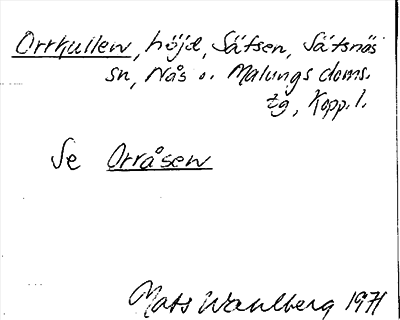 Orrkullen, höjd, Säfsen, Säfsnäs
sn, Nås o. Malungs doms.
tg, Kopp. l.
Se Orråsen
Mats Wahlberg 1971